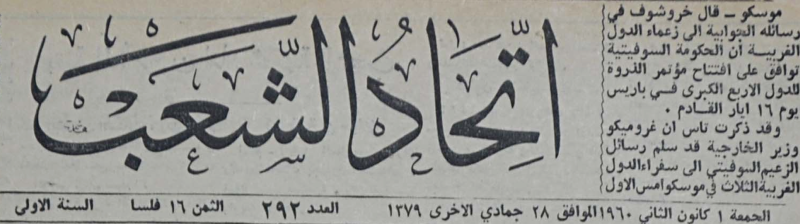 موسكو ــ قال خروشوف في
رسائله الجوابية الى زعماء الدول
الغربيـة أن الحكومة السوفيتية
توافق على افتتاح مؤتمر الذروة
للدول الاربع الكبرى في باريس
يوم ١٦ ايار القادم ٠
وقد ذكرت تاس ان غروميكو
وزير الخارجية قد سلم رسائل
الزعيم السوفيتي الى سفراء الدول
الغربية الثلاث في موسكو امس الاول
اتحاد الشعب
الجمعة ١ كانون الثاني ١٩٦٠ الموافق ٢٨ جمادي الاخرى ١٣٧٩
العدد ٢٩٢
الثمن ١٦ فلسا
السنة الاولى